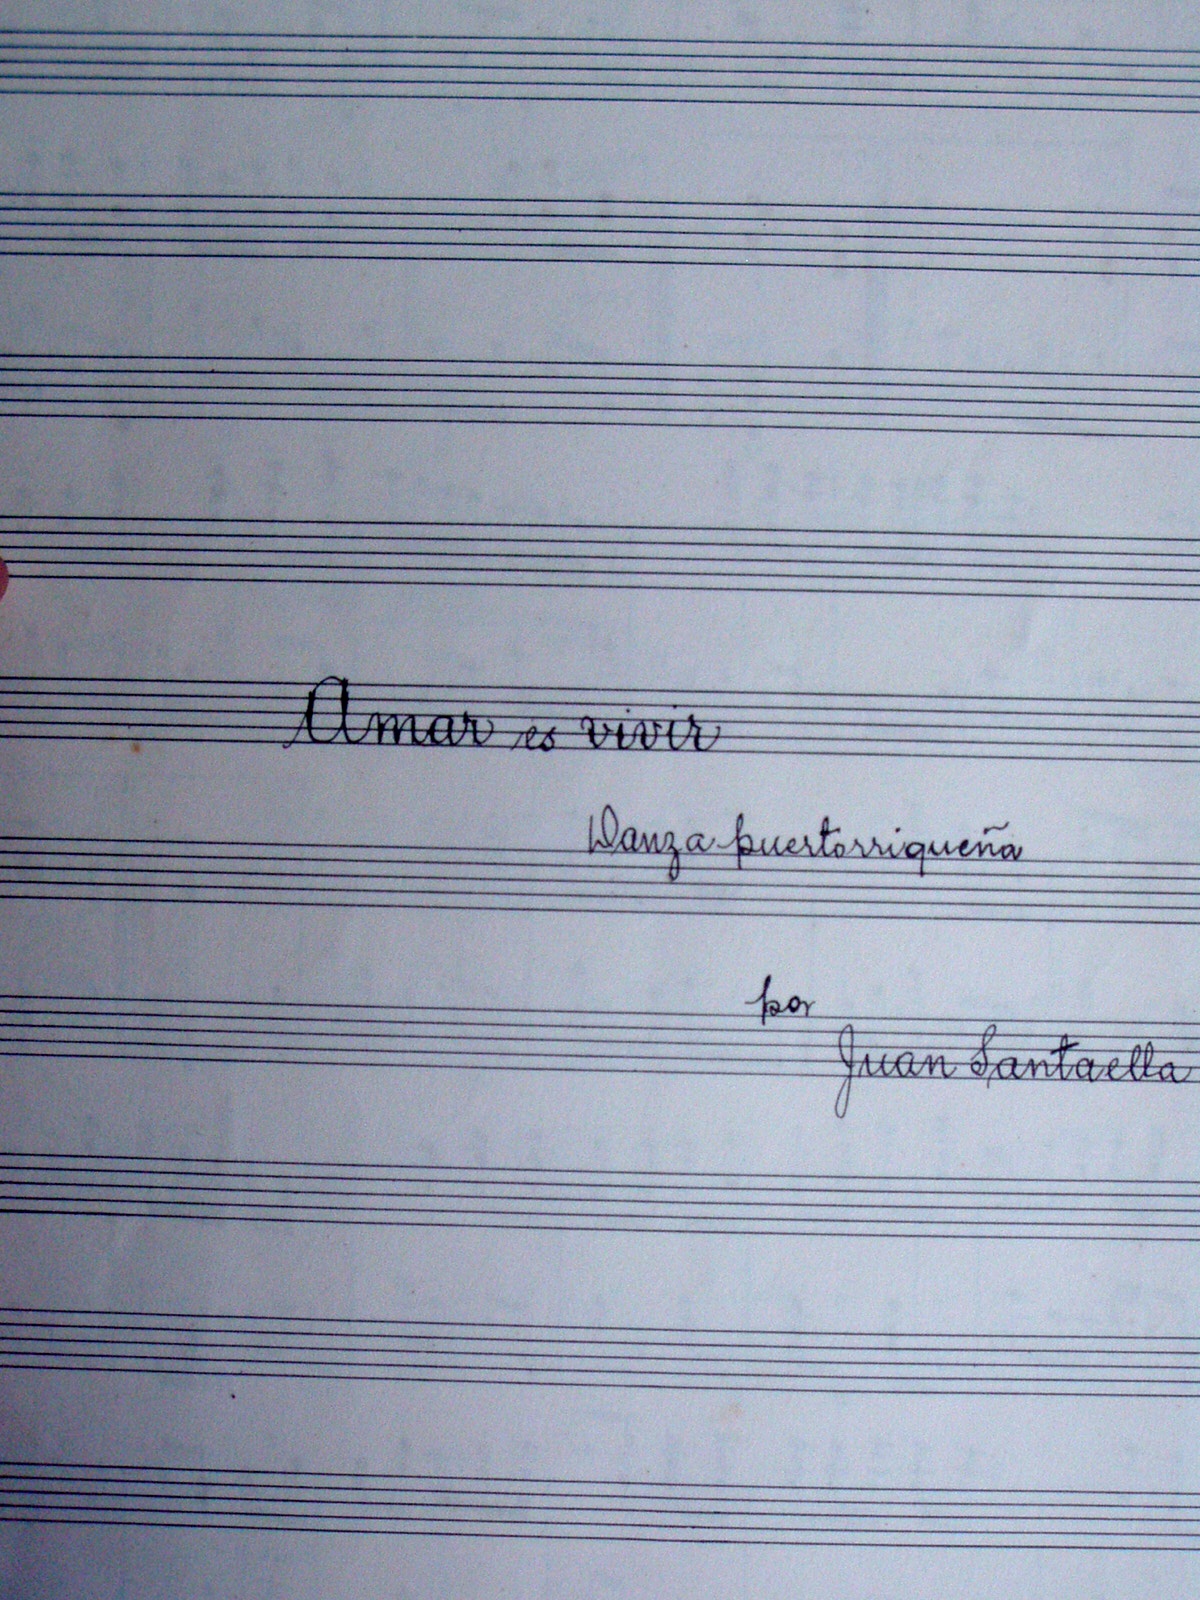 Amar es vivir
Danza puertorriqueña
por
Juan Santaella